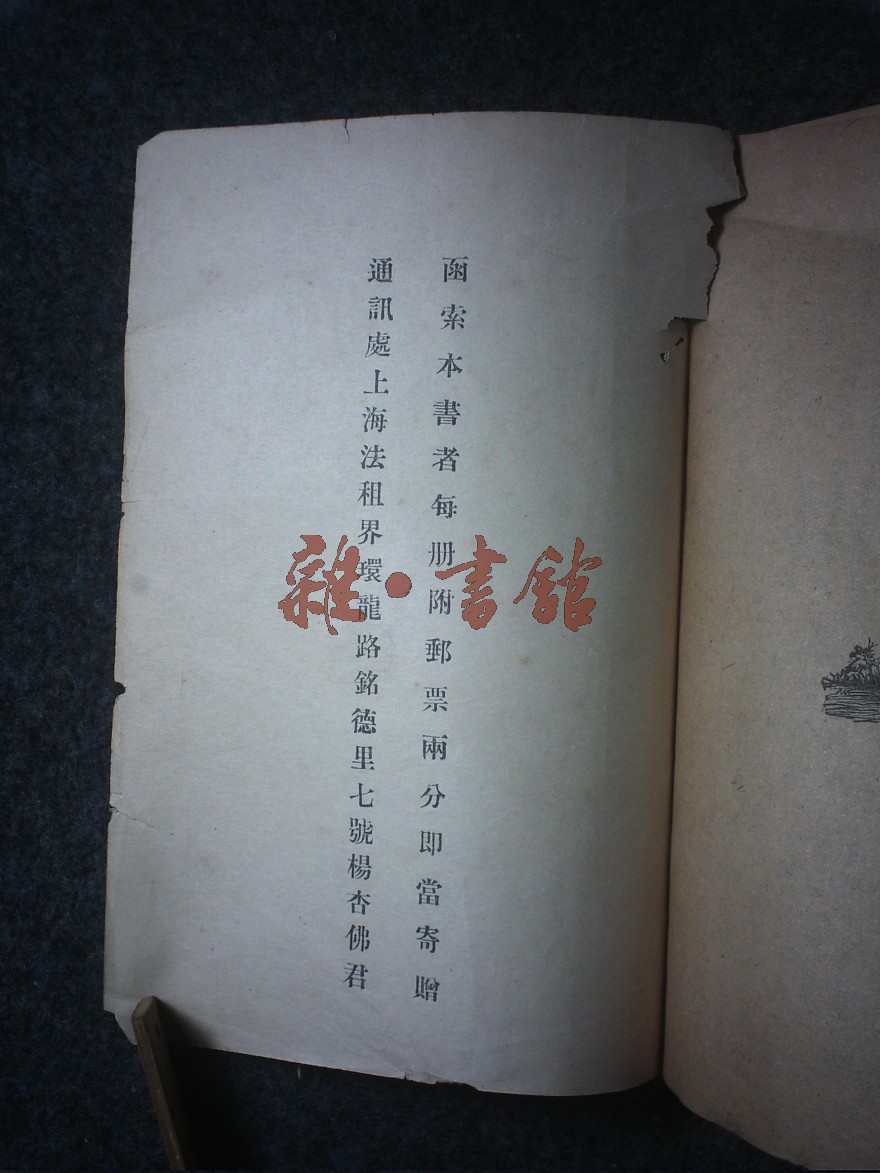 函索本書者每册附郵票兩分即當寄贈
通訊處上海法租界環龍路銘德里七號楊杏佛君
雜·書館